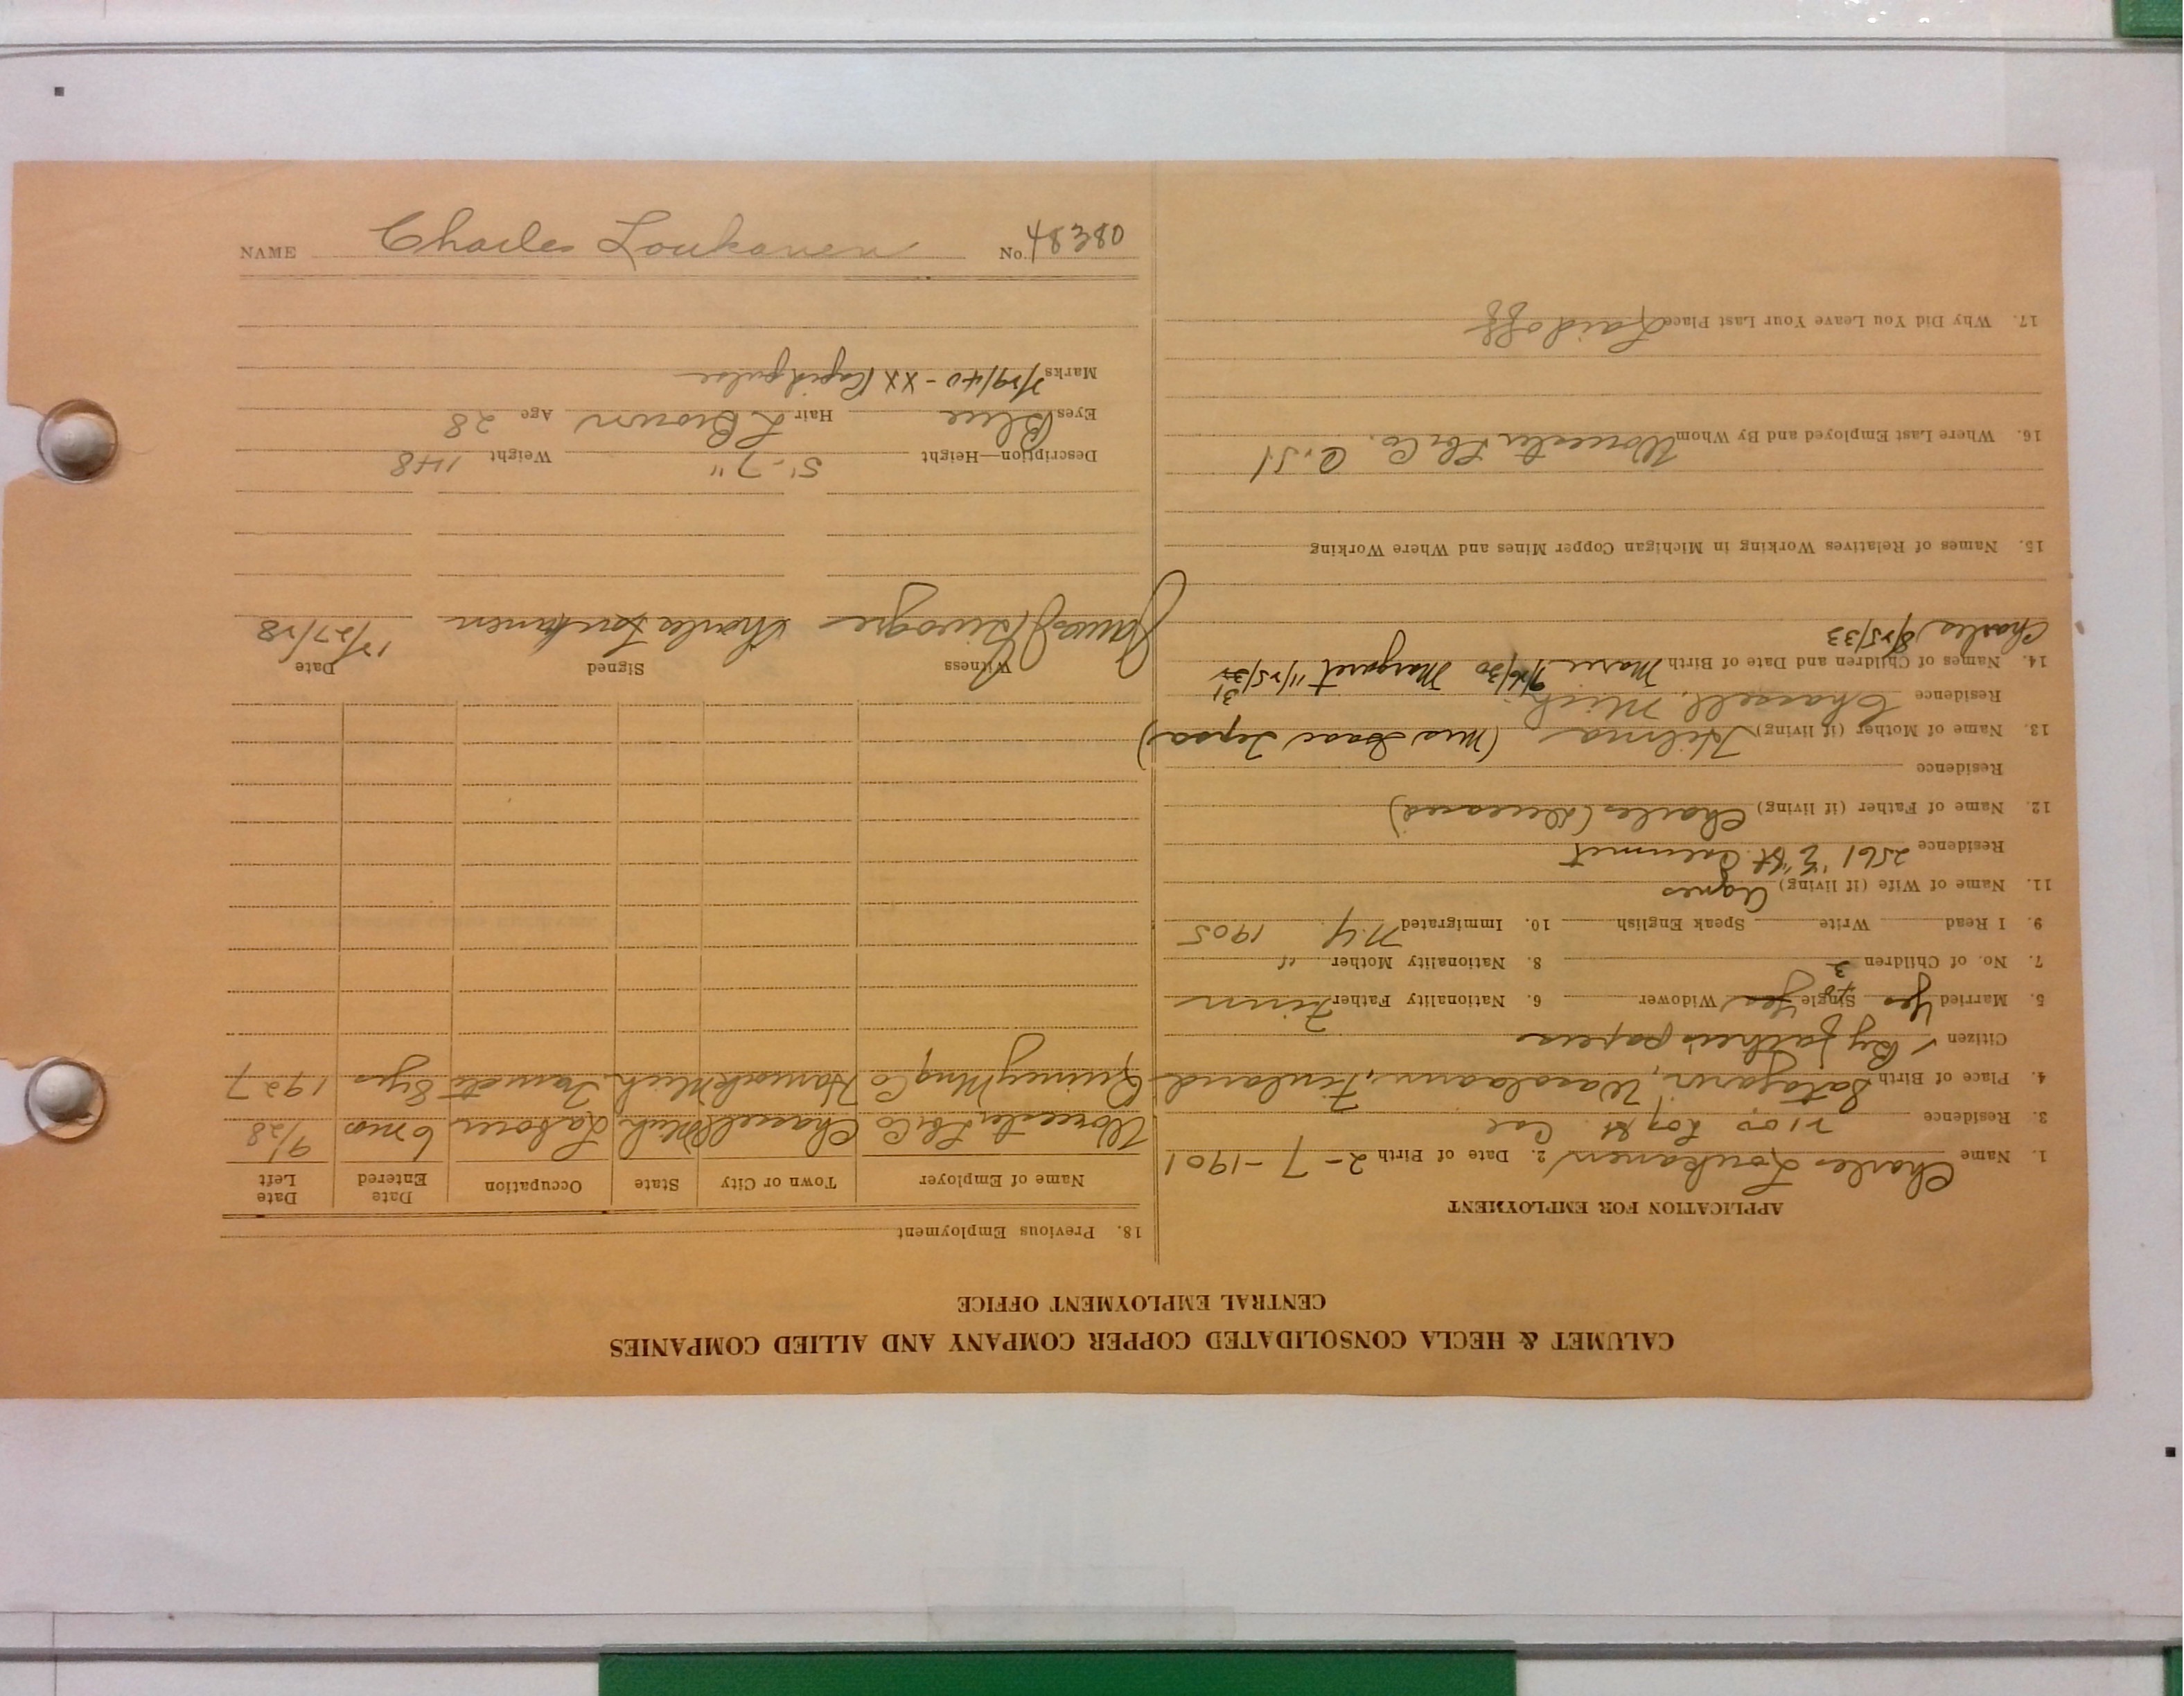 CALUMET & HECLA CONSOLIDATED COPPER COMPANY AND ALLIED COMPANIES
CENTRAL EMPLOYMENT OFFICE
APPLICATION FOR EMPLOYMENT
1. Name Charles Loukanen 2. Date of Birth 2-7-1901
3. Residence St Cal
4. Place of Birth Finland
Citizen By father's papers
5. Married Yes Single Yes Widower 6. Nationality Father Finn
7. No. of Children 3 8. Nationality Mother "
9. I Read Write Speak English 10. Immigrated N.Y. 1905
11. Name of Wife (if living) Agnes
Residence 2561 "E" St. Calumet
12. Name of Father (if living) Charles (deceased)
Residence
13. Name of Mother (if living) Hilma (Mrs Isaac
Residence Chassell, Mich
14. Names of Children and Date of Birth Marie Margaret
Charles 8/25/33
15. Names of Relatives Working in Michigan Copper Mines and Where Working
16. Where Last Employed and By Whom Worcester Lbr Co.
17. Why Did You Leave Your Last Place Laid off
18. Previous Employment
Name of Employer Town or City State Occupation Date Entered Date Left
Worcester Lbr Co Chassell Mich Laborer 6 mos 9/28
Quincy Mng Co Hancock Mich 8 yrs 1927
Witness Signed Date
James Charles Loukanen 12/27/28
Description—Height 5'-7" Weight 148
Eyes Blue Hair L Brown Age 28
Marks 7/29/40 - XX Rapid pulse
NAME Charles Loukanen No. 48380